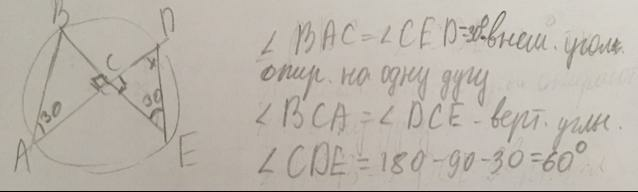 B
D
C
x
30
30
A
E
∠ BAC = ∠ CED = 30° внеш. угол.
опир. на одну дугу
∠ BCA = ∠ DCE - верт. углы.
∠ CDE = 180 - 90 - 30 = 60°